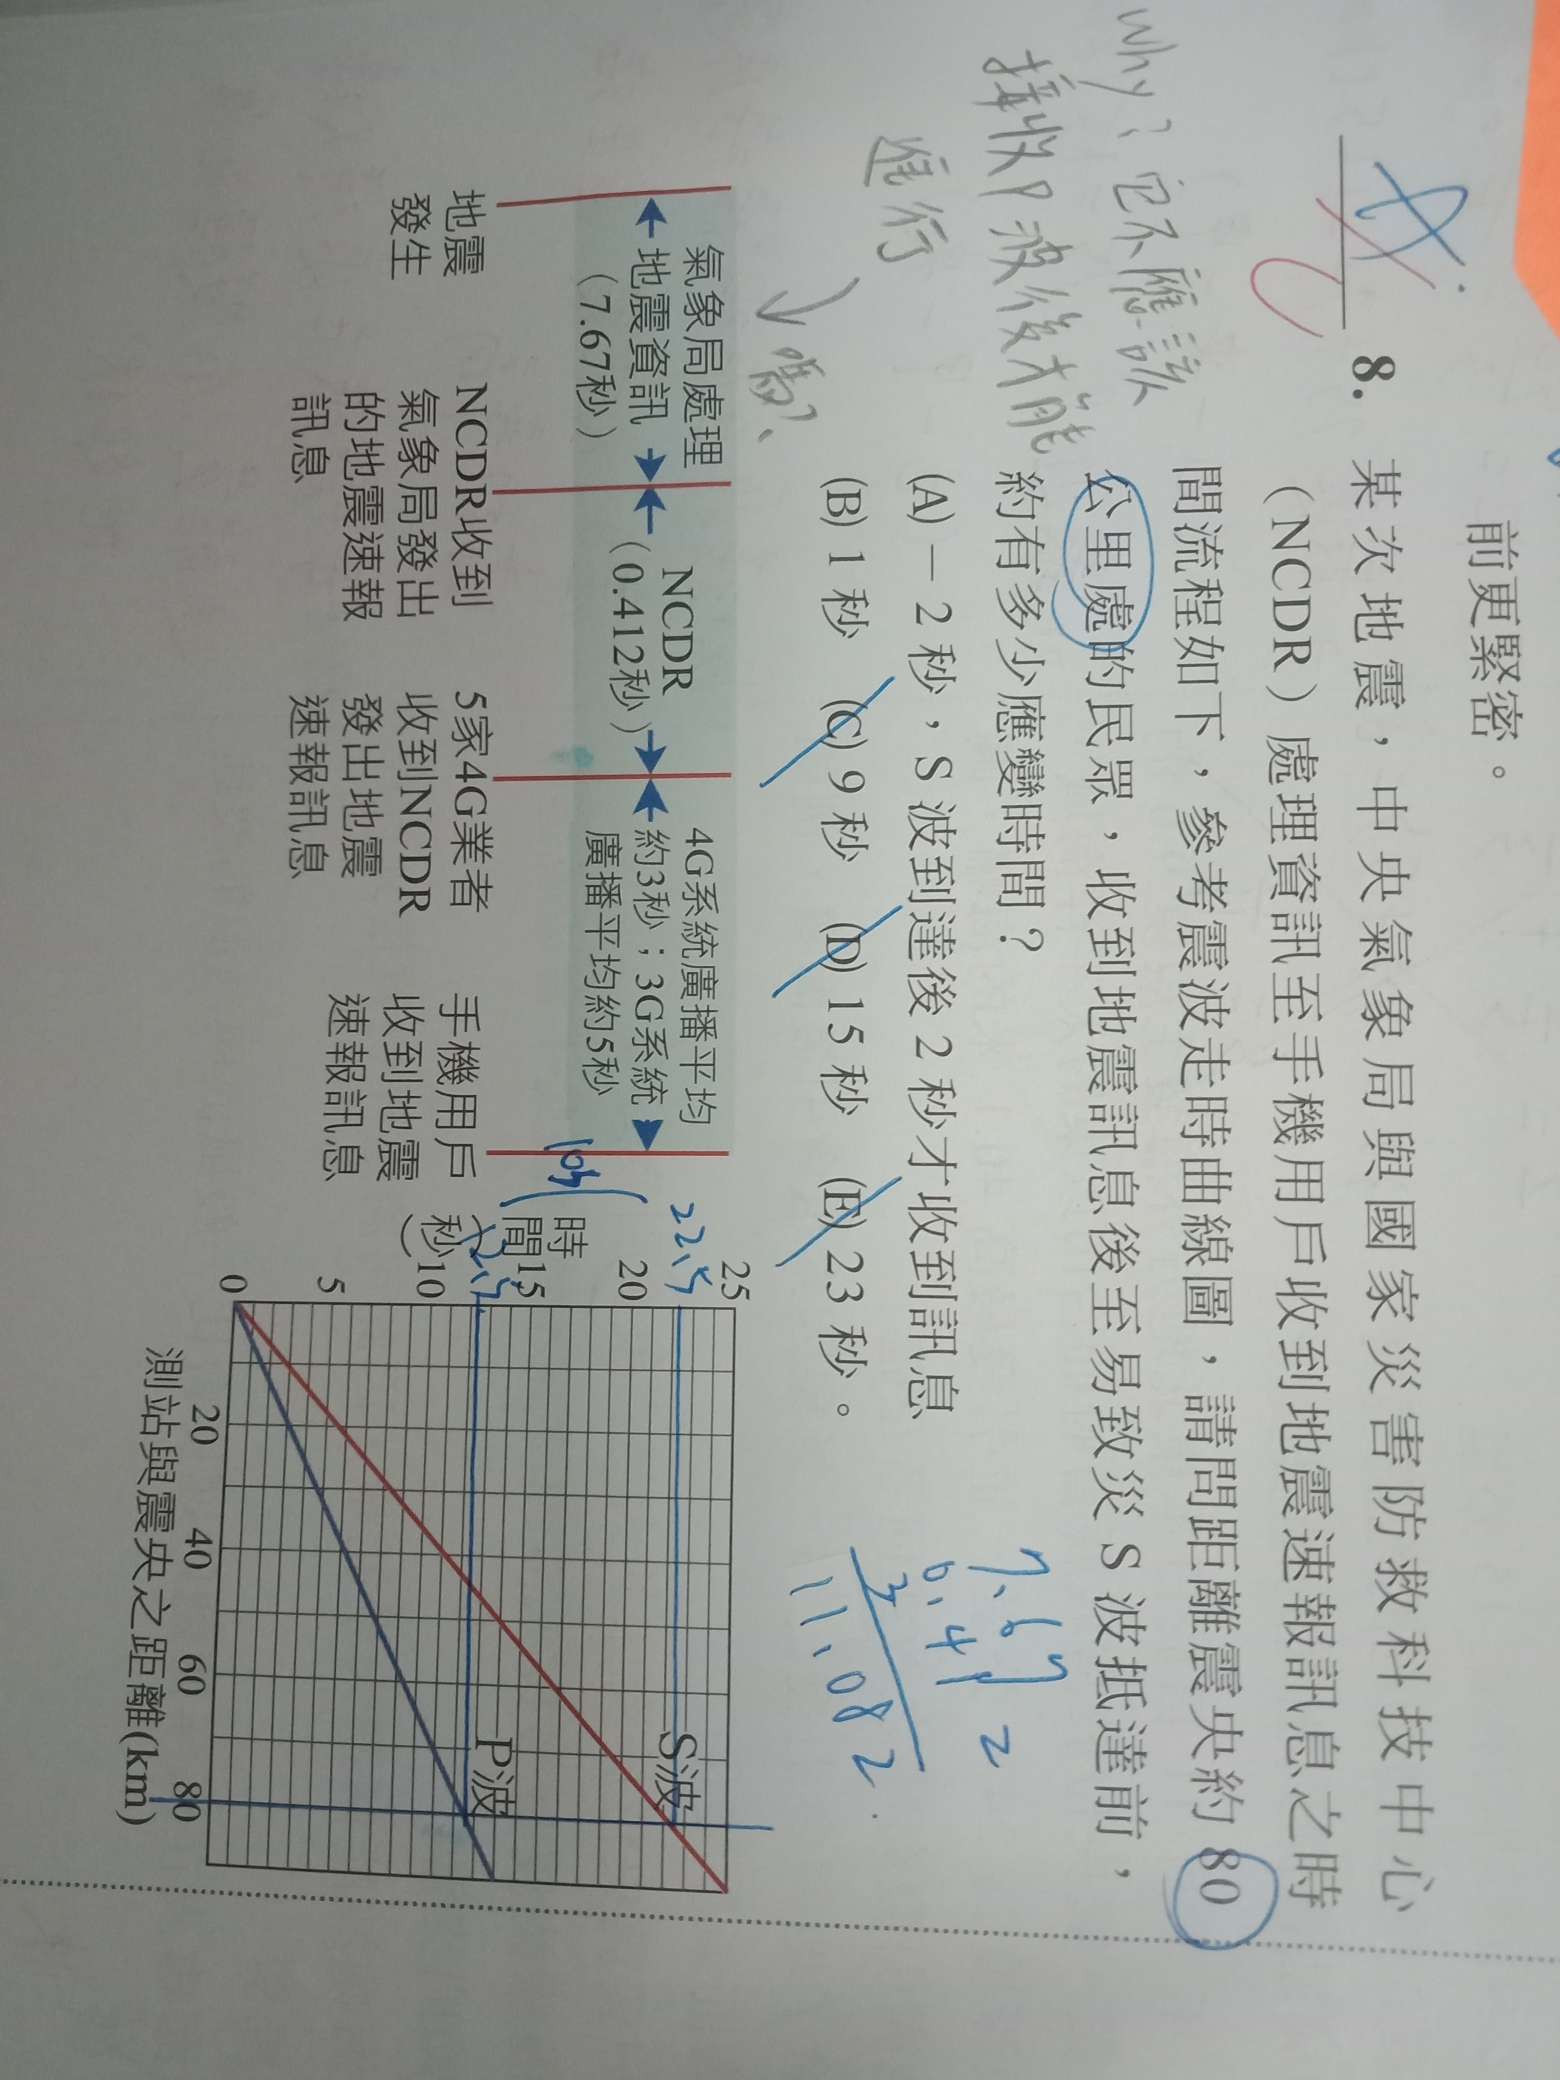 前更緊密。
8. 某次地震，中央氣象局與國家災害防救科技中心
（NCDR）處理資訊至手機用戶收到地震速報訊息之時
間流程如下，參考震波走時曲線圖，請問距離震央約 80
公里處的民眾，收到地震訊息後至易致災 S 波抵達前，
約有多少應變時間？
(A)－2 秒，S 波到達後 2 秒才收到訊息
(B) 1 秒 (C) 9 秒 (D) 15 秒 (E) 23 秒。
why？它不應該
接收P波後才能
進行
嗎？
7.67
0.412
3
11.082
氣象局處理
地震資訊
（7.67秒）
NCDR
（0.412秒）
4G系統廣播平均
約3秒；3G系統
廣播平均約5秒
地震
發生
NCDR收到
氣象局發出
的地震速報
訊息
5家4G業者
收到NCDR
發出地震
速報訊息
手機用戶
收到地震
速報訊息
時間（秒）
25
22.5
20
15
10
5
0
S波
P波
20 40 60 80
測站與震央之距離(km)